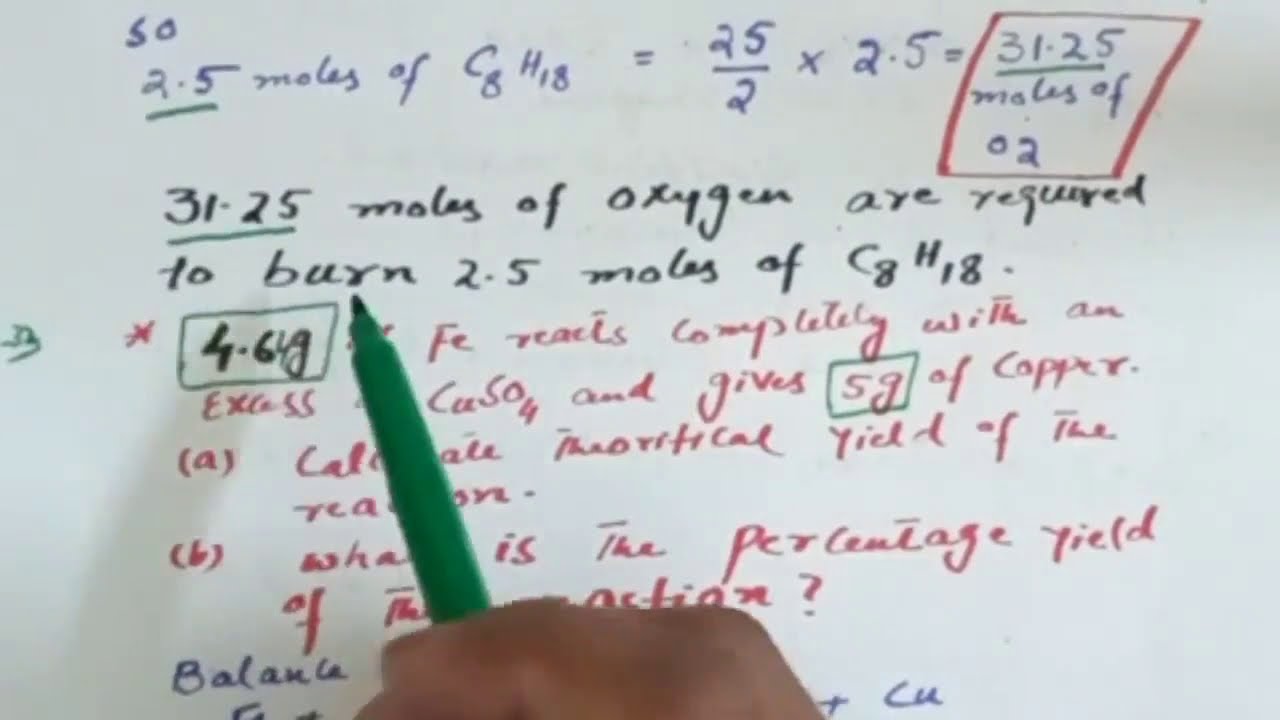 so
2.5 moles of C8H18 = 25/2 × 2.5 = 31.25
moles of
O2
31.25 moles of oxygen are required
to burn 2.5 moles of C8H18.
* Fe reacts completely with an
Excess CuSO4 and gives 5g of Copper.
(a) theoritical yield of the
(b) is the percentage yield
of ?
Balance
+ Cu